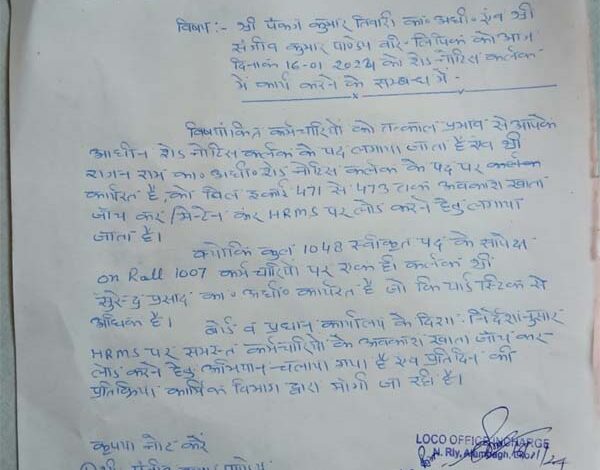 विषय :- श्री पंकज कुमार तिवारी का० अधी० एवं श्री
संजीव कुमार पाण्डेय वरि- लिपिक को आज
दिनांक 16-01-2024 को शेड नोटिस कर्लक
में कार्य करने के सम्बन्ध में -
विषयांकित कर्मचारियों को तत्काल प्रभाव से आपके
आधीन शेड नोटिस कर्लक के पद लगाया जाता है एवं श्री
राम का० अधी० शेड नोटिस कर्लक के पद पर
कार्यरत है, को बिल इकाई 471 से 473 तक अवकाश खाता
जाँच कर / मिन्टेन कर HRMS पर लोड करने हेतु लगाया
जाता है।
क्योंकि कुल 1048 स्वीकृत पद के सापेक्ष
on Roll 1007 कर्मचारियों पर एक ही कर्लक श्री
सुरेन्द्र प्रसाद का० अधी० कार्यरत है जो कि यार्ड स्टिक से
अधिक है।
बोर्ड व प्रधान कार्यालय के दिशा निर्देशानुसार
HRMS पर समस्त कर्मचारियों के अवकाश खाता जाँच कर
लोड करने हेतु अभियान चलाया गया है एवं प्रतिदिन की
प्रतिक्रिया कार्मिक विभाग द्वारा माँगी जा रही है।
कृपया नोट करें
LOCO OFFICE INCHARGE
N. Rly, Alambagh,